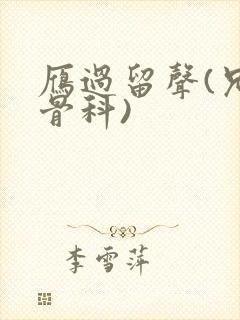 雁過留聲(兄
骨科)
李雪萍